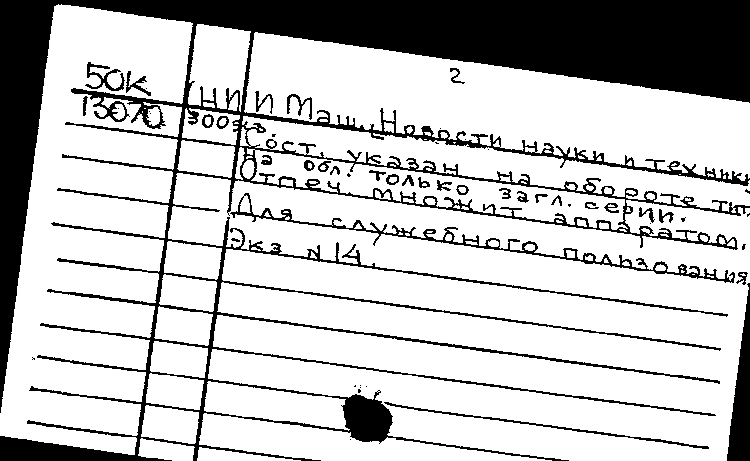 2
50к
13070
(НИИМаш. Новости науки и техники
300экз.
Сост. указан на обороте тит.
На обл. только загл. серии.
Отпеч. множит. аппаратом.
Для служебного пользования
Экз N 14.